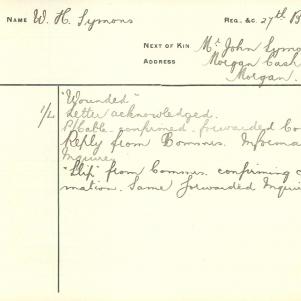 NAME W. H. Symons
REG. &C. 27th B
NEXT OF KIN Mr John Symo
ADDRESS Morgan Cash
Morgan.
1/L
"Wounded"
Letter acknowledged.
P/Cable confirmed forwarded Co
Reply from Bommns. Informa
Inquire
"Slip" from Commns. confirming c
mation. Same forwarded Inquir